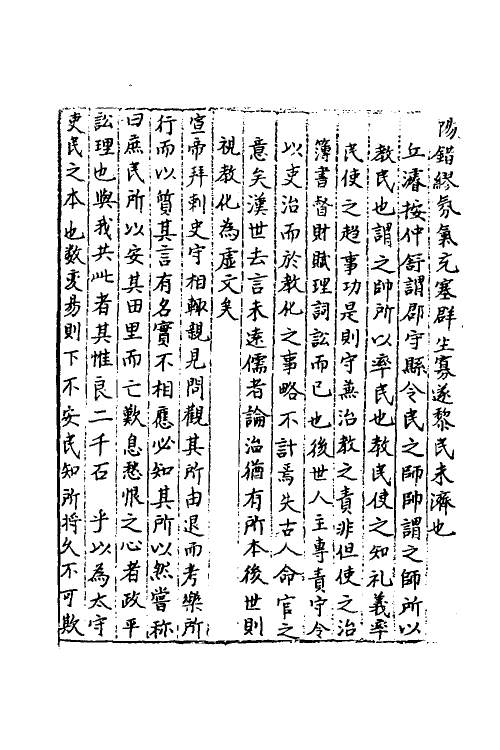 陽錯繆氛氣充塞群生寡遂黎民未濟也
丘濬按仲舒謂郡守縣令民之師帥謂之師所以
教民也謂之帥所以率民也教民使之知礼義率
民使之趨事功是則守兼治教之責非但使之治
簿書督財賦理詞訟而已也後世人主專責守令
以吏治而於教化之事略不計焉失古人命官之
意矣漢世去言未遠儒者論治猶有所本後世則
視教化為虛文矣
宣帝拜刺史守相輒親見問觀其所由退而考樂所
行而以質其言有名實不相應必知其所以然嘗称
曰庶民所以安其田里而亡歎息愁恨之心者政平
訟理也與我共此者其惟良二千石乎以為太守
吏民之本也數变易則下不安民知所将久不可欺